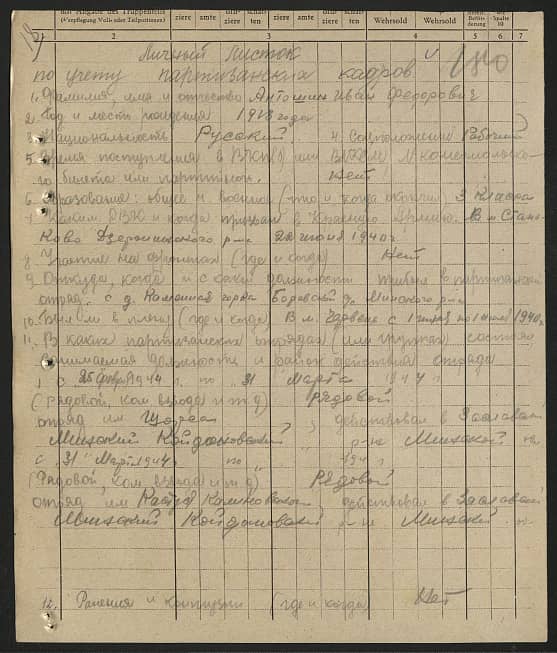 mit Angabe des Truppenteils
(Verpflegung Voll- oder Teilportionen)
ziere
amte
ziere
ten
ziere
amte
ziere
ten
Wehrsold
Wehrsold
Spalte
10
2
3
4
5
6
7
Личный Листок
по учету партизанских кадров
1. Фамилия, имя и отчество Антошин Иван Федорович
2. Год и место рождения 1918 года
3. Национальность Русский. 4. Соцположение Рабочий
5. Время поступления в ВКП(б) или ВЛКСМ № комсомольско-
го билета или партбилета. Нет
6. Образование: общее и военное (что и когда окончил) 3 класса
7. Каким РВК и когда призван в Красную Армию. В м. Стань-
ково Дзержинского р-на 22 июня 1940 г.
8. Участие на фронтах (где и когда) Нет
9. Откуда, когда и с какой должности прибыл в партизанский
отряд. с д. города Минского р-на
10. Был ли в плену (где и когда) В м. с 1 по 1 1940 г.
11. В каких партизанских отрядах (или группах) состоял
занимаемая должность и район действия отряда
с 25 1944 г. по "31" Марта 1944 г.
(рядовой, ком взвода и т.д) Рядовой
отряд им Щорса, действовал в Заславский
Минский Койдановский р-не Минской
с "31" Март 1944 г. по 194 г.
(Рядовой, ком взвода и т.д) Рядовой
отряд им Кастуся Калиновского, действовал в Заславский
Минский Койдановский р-не Минской
12. Ранения и контузии (где и когда) Нет